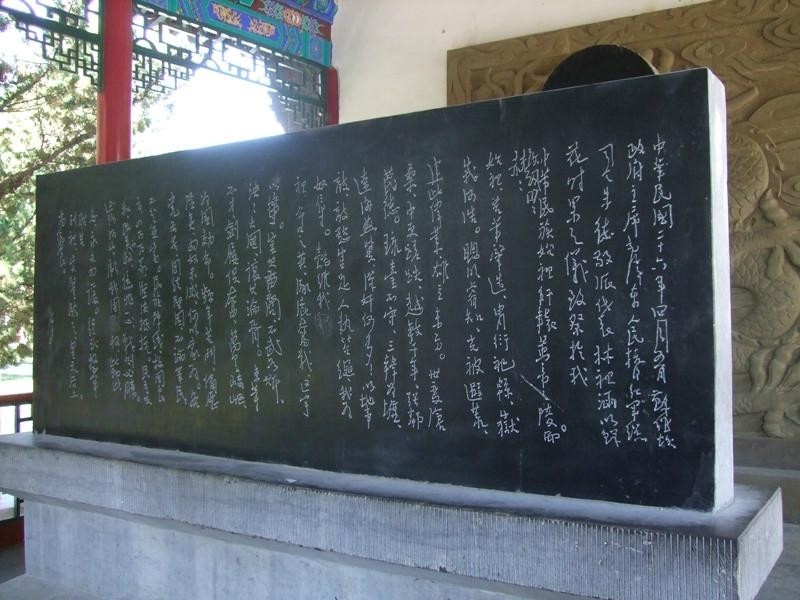 中華民國二十六年四月五日蘇維埃
政府主席毛澤東人民抗日紅軍總
司令朱德敬派代表林祖涵以鮮
花時果之儀致祭於我
中華民族始祖軒轅黃帝之陵而
致詞曰:
赫赫
始祖,吾華肇造,冑衍祀綿,嶽
峨河浩。聰明睿知,光被遐荒,
建此偉業,雄立東方。世變滄
桑,中更蹉跌,越數千年,強鄰
蔑德。琉臺不守,三韓為墟,
遼海燕冀,漢奸何多!以地事
敵,敵欲豈足,人執笞繩,我為
奴辱。懿維我
祖,命世之英,涿鹿奮戰,區宇
以寧。豈其苗裔,不武如斯,
泱泱大國,讓其淪胥。東等
不才,劍屨俱奮,萬里崎嶇,
為國效命。頻年苦鬥,備歷
險夷,匈奴未滅,何以家為。各黨